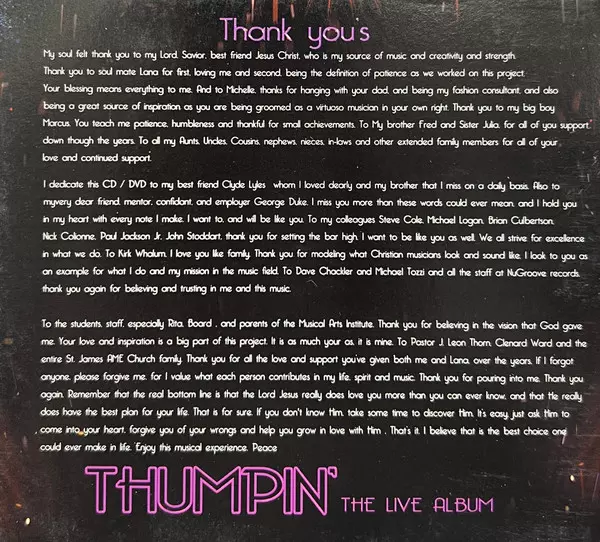 Thank you's
My soul felt thank you to my Lord, Savior, best friend Jesus Christ, who is my source of music and creativity and strength.
Thank you to soul mate Lana for first, loving me and second, being the definition of patience as we worked on this project.
Your blessing means everything to me. And to Michelle, thanks for hanging with your dad, and being my fashion consultant, and also
being a great source of inspiration as you are being groomed as a virtuoso musician in your own right. Thank you to my big boy
Marcus. You teach me patience, humbleness and thankful for small achievements. To My brother Fred and Sister Julia, for all of you support,
down though the years. To all my Aunts, Uncles, Cousins, nephews, nieces, in-laws and other extended family members for all of your
love and continued support.
I dedicate this CD / DVD to my best friend Clyde Lyles whom I loved dearly and my brother that I miss on a daily basis. Also to
myvery dear friend, mentor, confidant, and employer George Duke. I miss you more than these words could ever mean, and I hold you
in my heart with every note I make. I want to, and will be like you. To my colleagues Steve Cole, Michael Logan, Brian Culbertson,
Nick Collonne, Paul Jackson Jr, John Stoddart, thank you for setting the bar high. I want to be like you as well. We all strive for excellence
in what we do. To Kirk Whalum, I love you like family. Thank you for modeling what Christian musicians look and sound like. I look to you as
an example for what I do and my mission in the music field. To Dave Chackler and Michael Tozzi and all the staff at NuGroove records,
thank you again for believing and trusting in me and this music.
To the students, staff, especially Rita, Board , and parents of the Musical Arts Institute. Thank you for believing in the vision that God gave
me. Your love and inspiration is a big part of this project. It is as much your as, it is mine. To Pastor J. Leon Thorn, Clenard Ward and the
entire St. James AME Church family. Thank you for all the love and support you've given both me and Lana, over the years. If I forgot
anyone, please forgive me, for I value what each person contributes in my life, spirit and music. Thank you for pouring into me. Thank you
again. Remember that the real bottom line is that the Lord Jesus really does love you more than you can ever know, and that He really
does have the best plan for your life. That is for sure. If you don't know Him, take some time to discover Him. It's easy, just ask Him to
come into your heart, forgive you of your wrongs and help you grow in love with Him . That's it. I believe that is the best choice one
could ever make in life. Enjoy this musical experience. Peace
THUMPIN' THE LIVE ALBUM